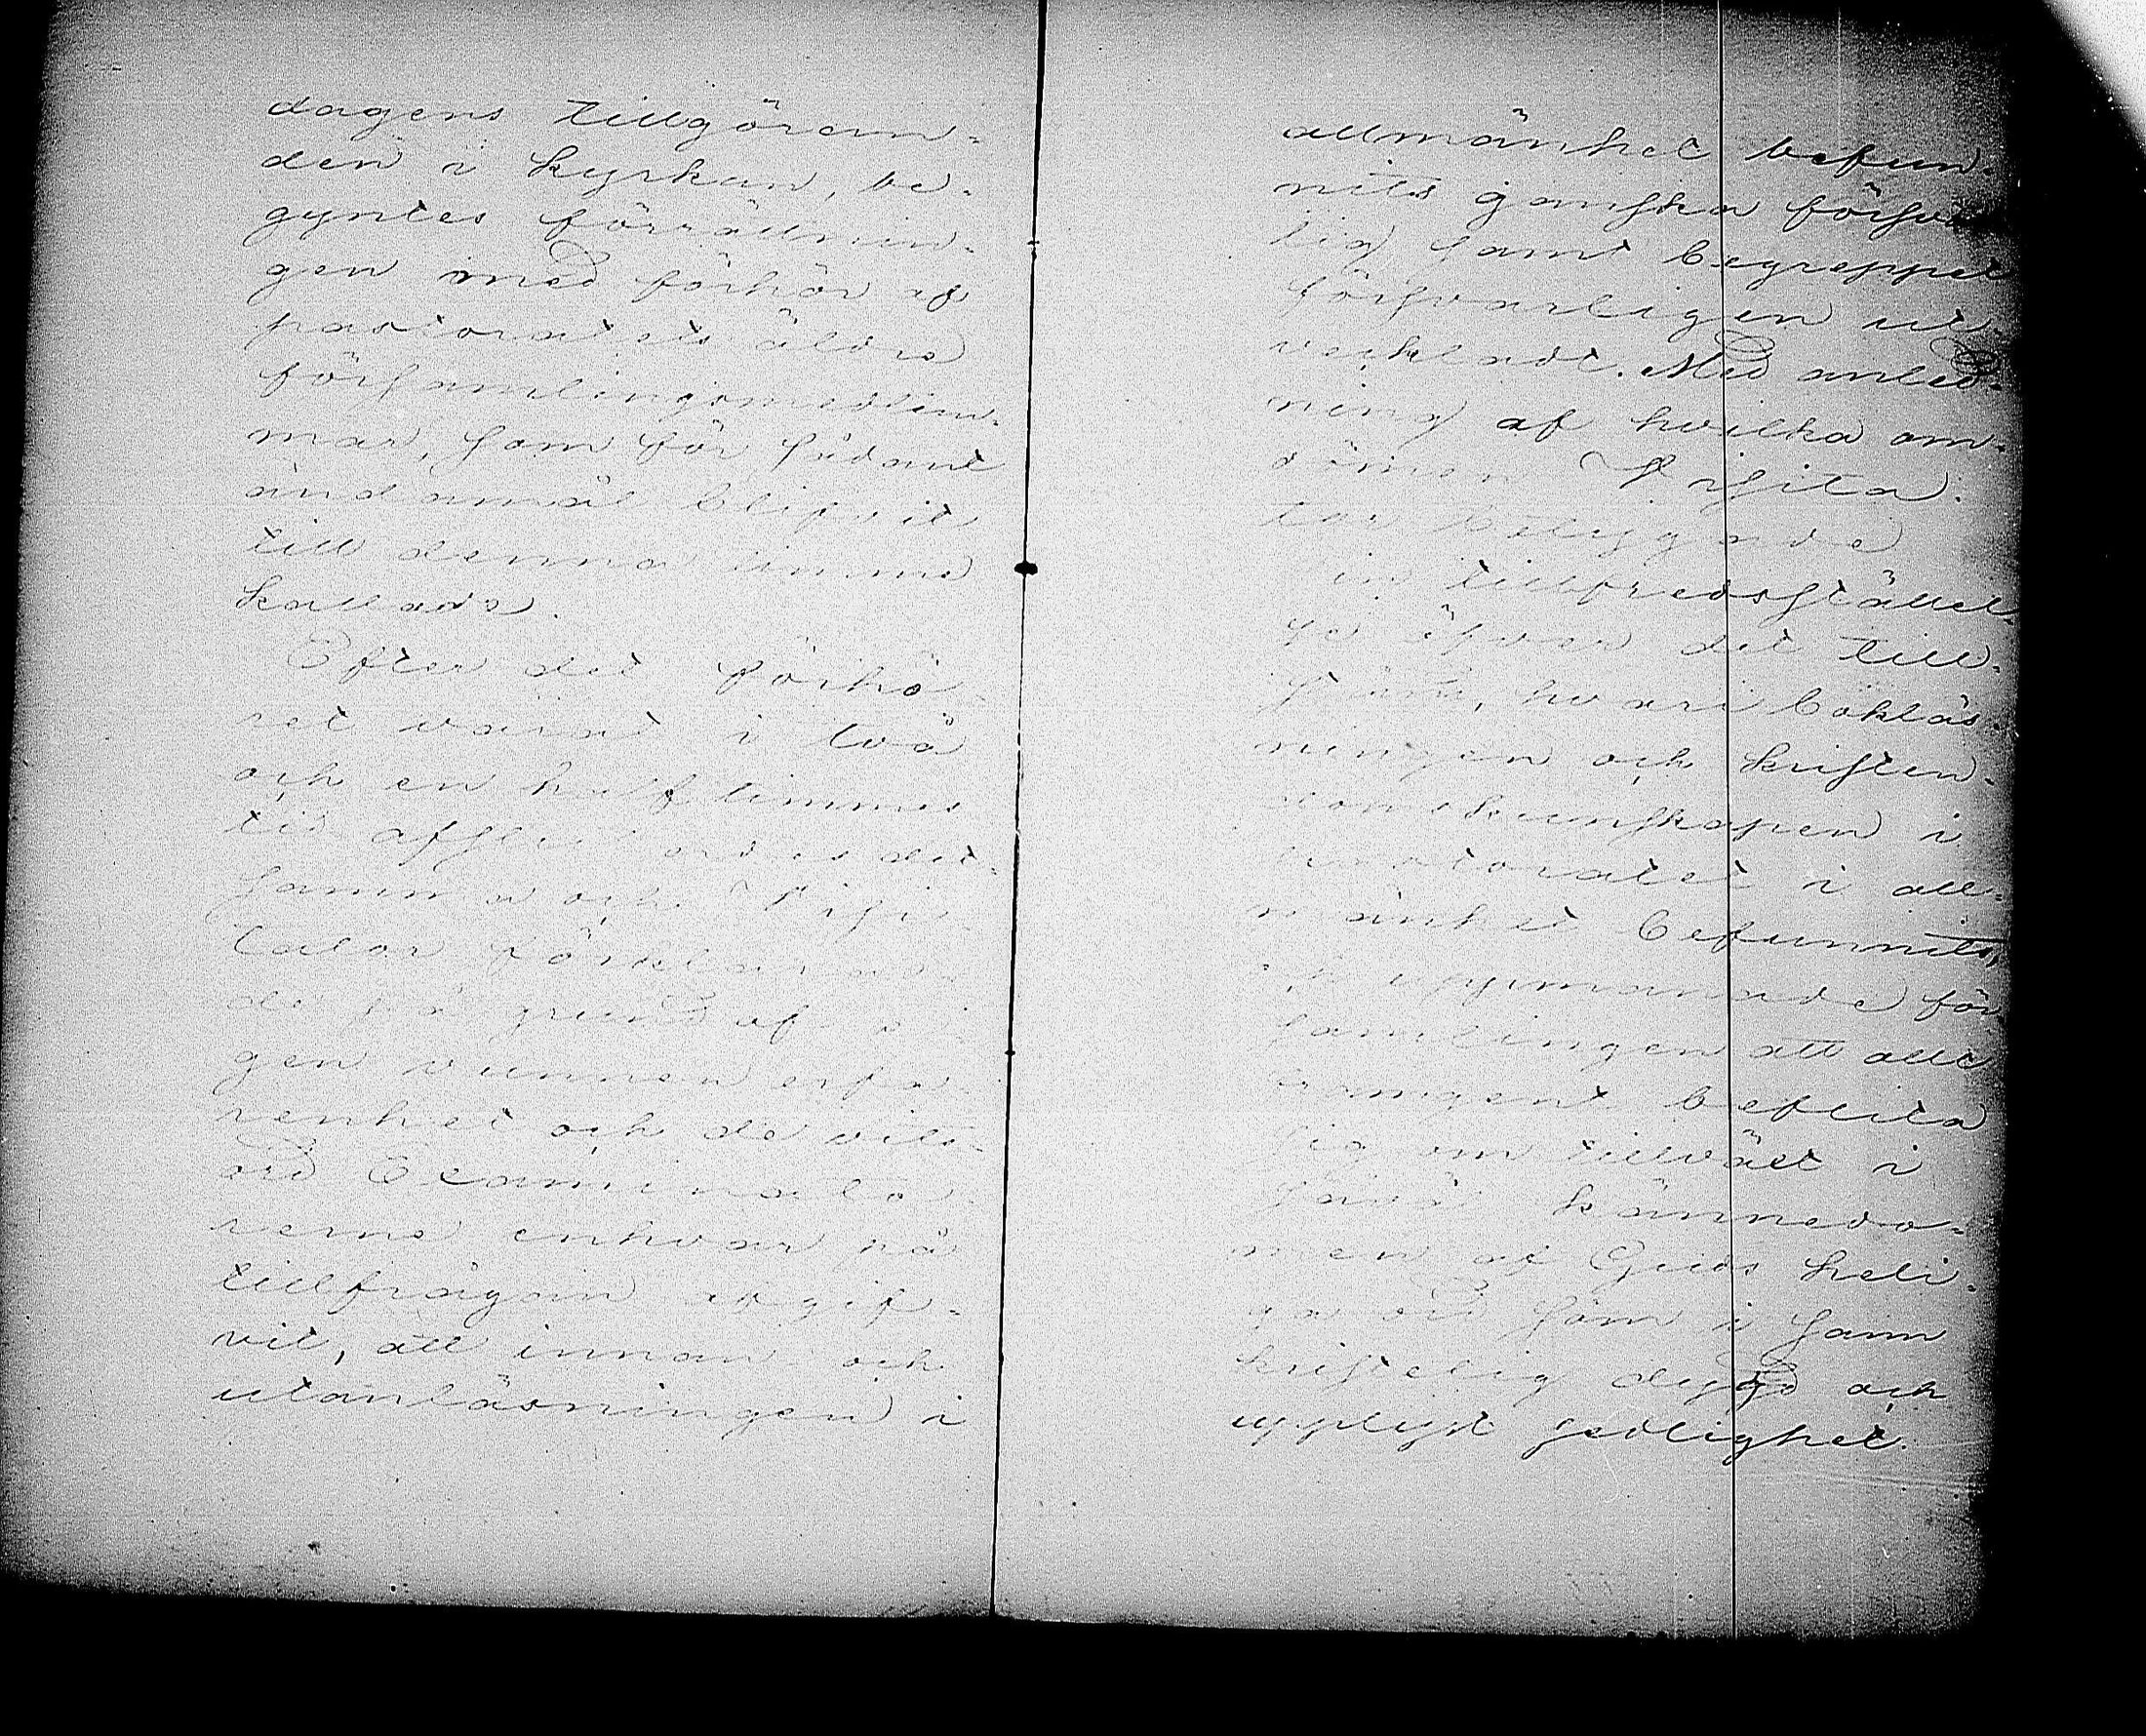 dagens tillgören-
den i kyrkan, be-
gyntes förrättnin-
gen med förhör af
pastoratets äldre
församlingsmedlem-
mar, som för sådant
ändamål blifvit
till denna timme
kallade.
Efter det förhö-
ret varat i två
och en half timmes
tid det-
samma och Visi-
tator förklara-
de på grund af
gen vunnen erfa-
renhet och de vits-
ord Examinato-
rerne enhvar på
tillfrågan afgif-
vit, att innan och
utanläsningen i
allmänhet befun-
nits ganska försvar
lig samt begreppet
försvarligen ut-
veckladt. Med anled-
ning af hvilka om-
dömen Visita-
tor
sin tillfredsställel-
se öfver det till-
stånd, hvari bokläs-
ningen och kristen-
domskunskapen i
pastoratet i all-
mänhet befunnits,
och uppmanade för
samlingen att allt
framgent beflita
sig om tillväxt i
såväl kännedo-
men af Guds heli-
ga ord som i sann
kristelig dygd och
upplyst sedlighet.